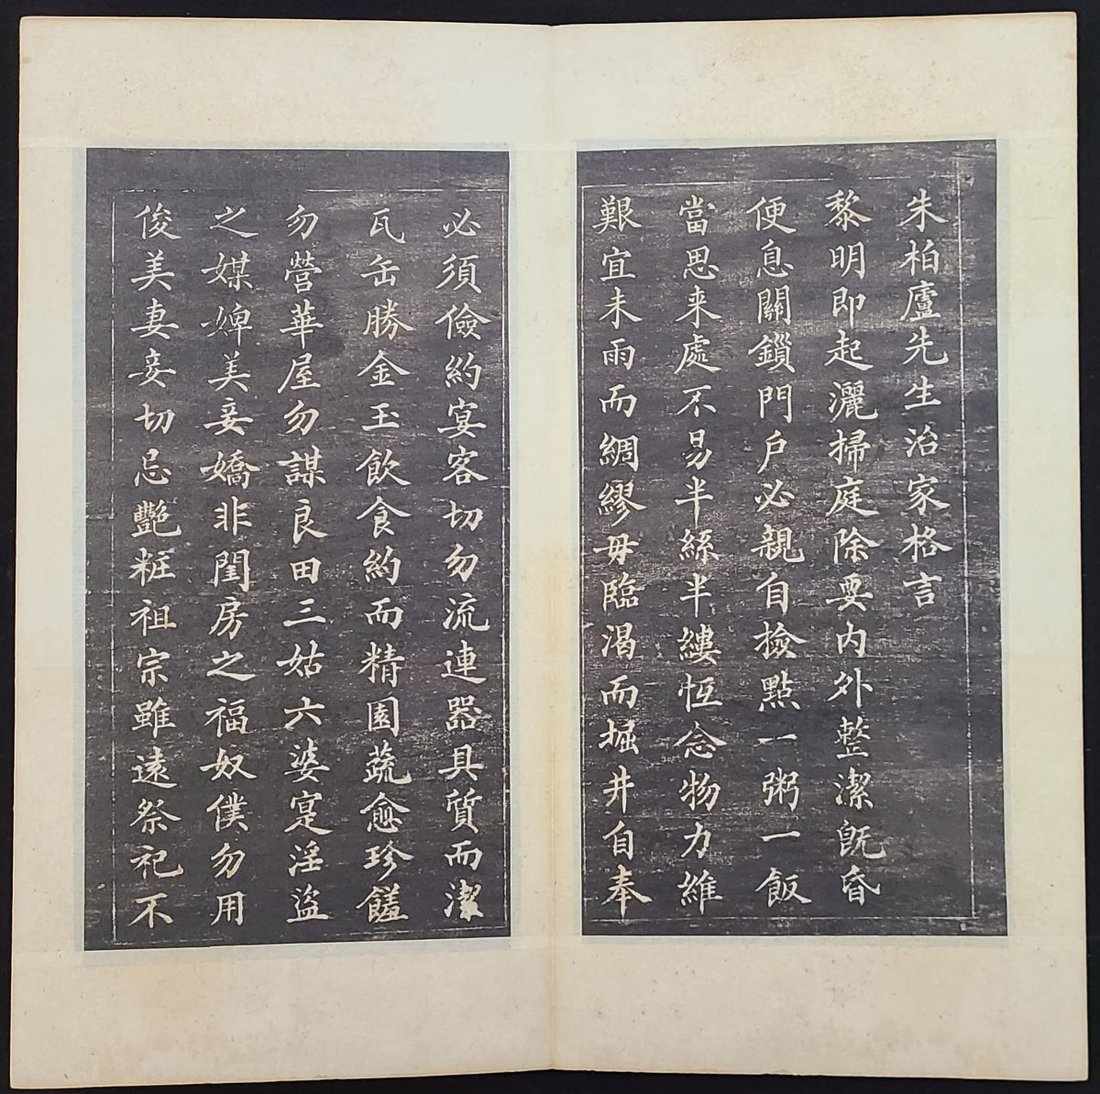 朱柏廬先生治家格言
黎明即起灑掃庭除要内外整潔既昏
便息關鎖門户必親自撿點一粥一飯
當思来處不易半絲半縷恆念物力維
艱宜未雨而綢繆毋臨渴而掘井自奉
必須儉約宴客切勿流連器具質而潔
瓦缶勝金玉飲食約而精園蔬愈珍饈
勿營華屋勿謀良田三姑六婆寔淫盜
之媒婢美妾嬌非閨房之福奴僕勿用
俊美妻妾切忌艷粧祖宗雖遠祭祀不